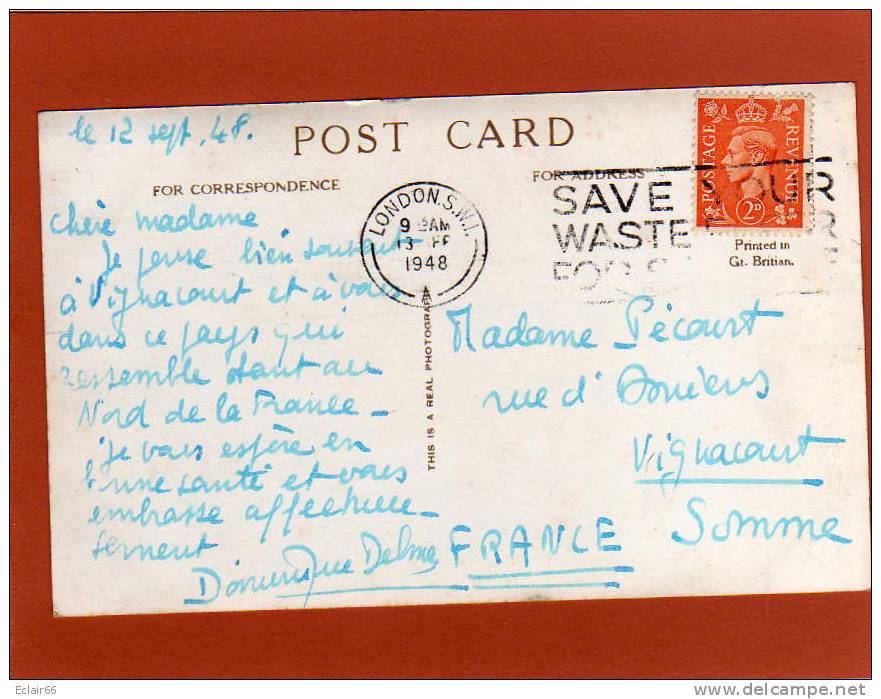 le 12 sept. 48.
POST CARD
FOR CORRESPONDENCE
FOR ADDRESS
POSTAGE REVENUE
2D
LONDON.S.W.1.
9 AM
13 SEP
1948
SAVE YOUR
WASTE
Printed in
Gt. Britian.
THIS IS A REAL PHOTOGRAPH
Chère madame
Je pense bien souvent
à Vignacourt et à vous
dans ce pays qui
ressemble tant au
Nord de la France –
je vous espère en
bonne santé et vous
embrasse affectueu–
sement
Dominique
Madame Pécourt
rue d'
Vignacourt
Somme
FRANCE
Eclair66
www.delcampe.net